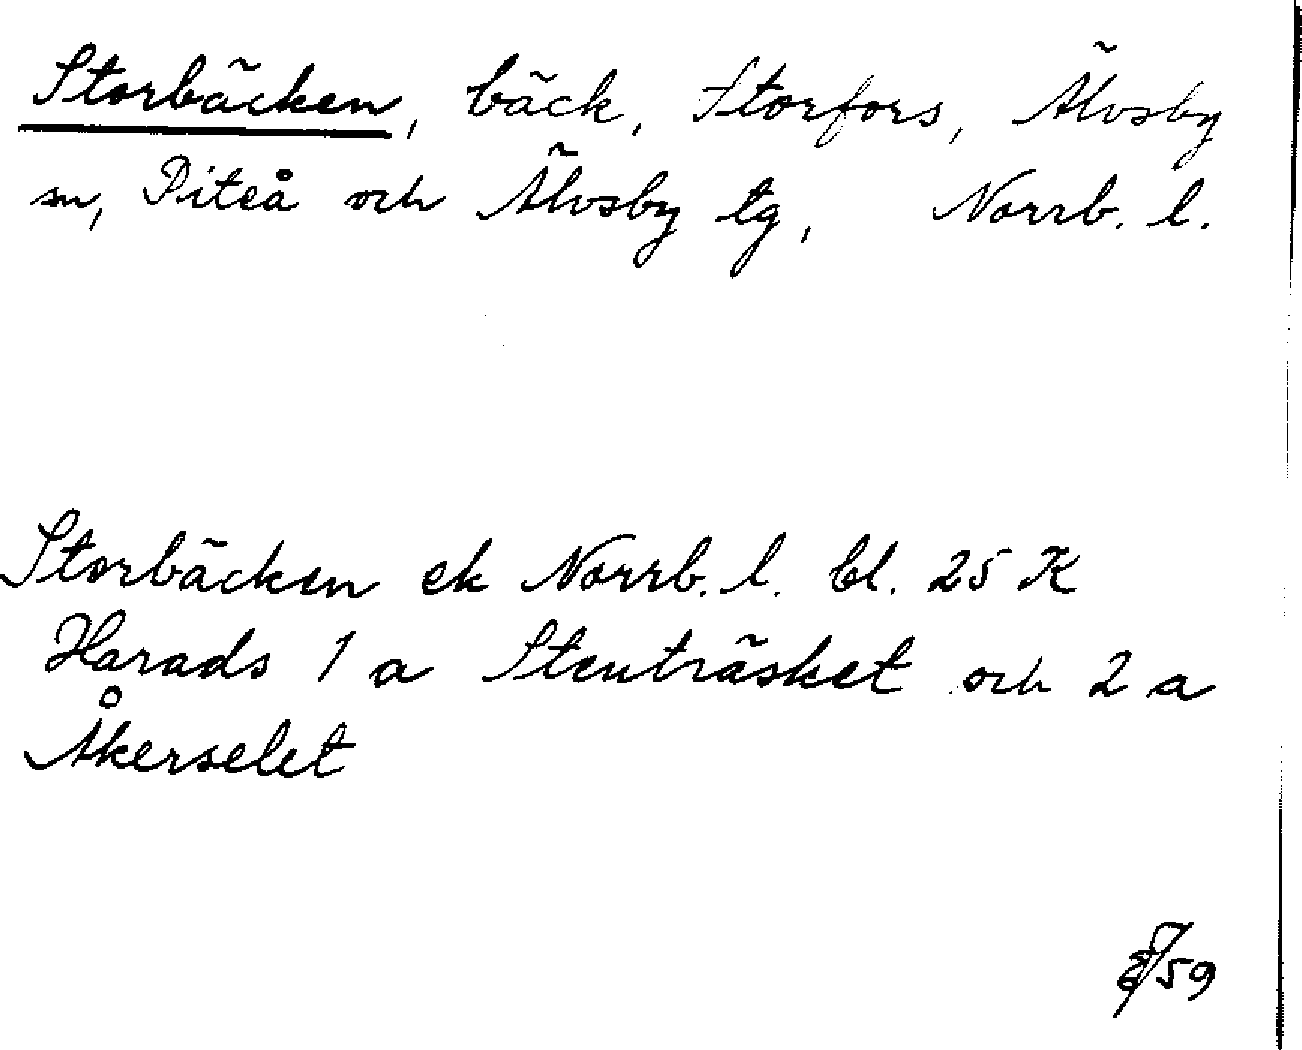 Storbäcken, bäck, Storfors, Älvsby
sn, Piteå och Älvsby tg, Norrb. l.
Storbäcken ek Norrb. l. bl. 25 K
Harads 1 a Stenträsket och 2 a
Åkerselet
59